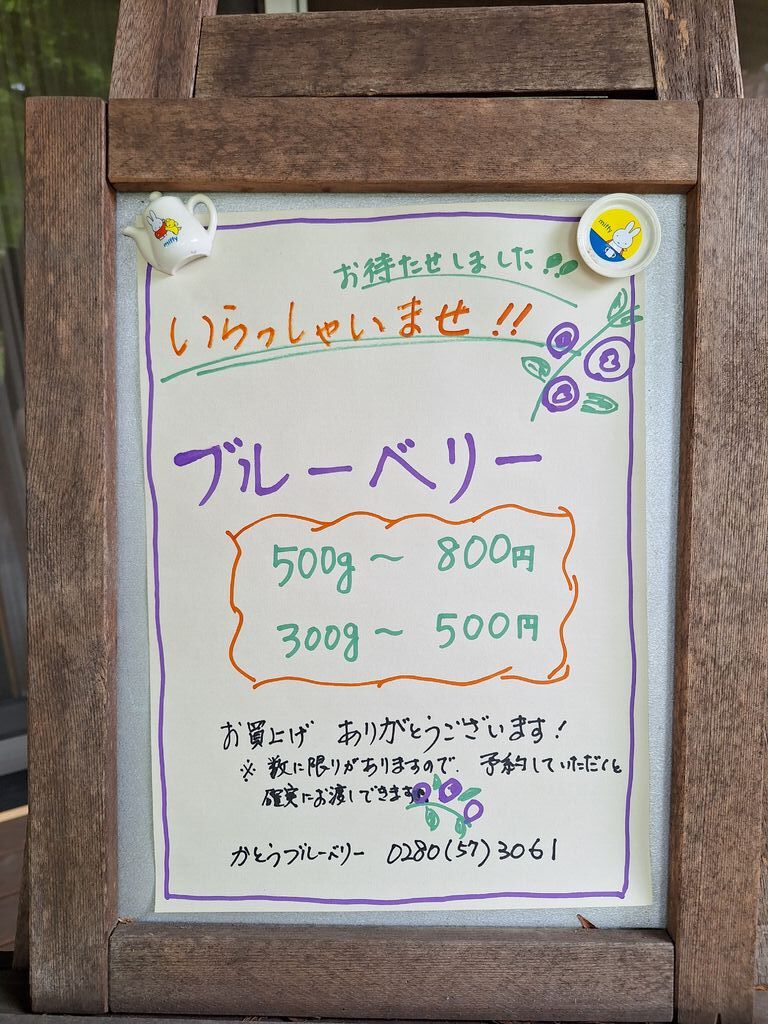 miffy
miffy
お待たせしました!!
いらっしゃいませ!!
ブルーベリー
500g～ 800円
300g～ 500円
お買上げ ありがとうございます!
※ 数に限りがありますので、予約していただくと
確実にお渡しできます。
かとうブルーベリー 0280(57)3061